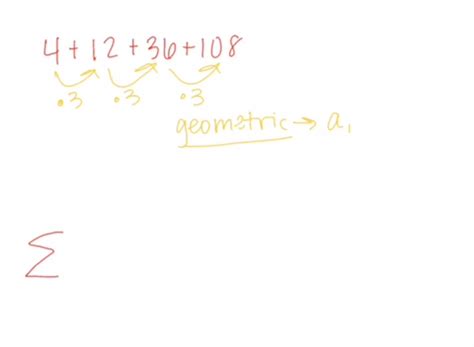 4+12+36+108
·3 ·3 ·3
geometric → a,
Σ